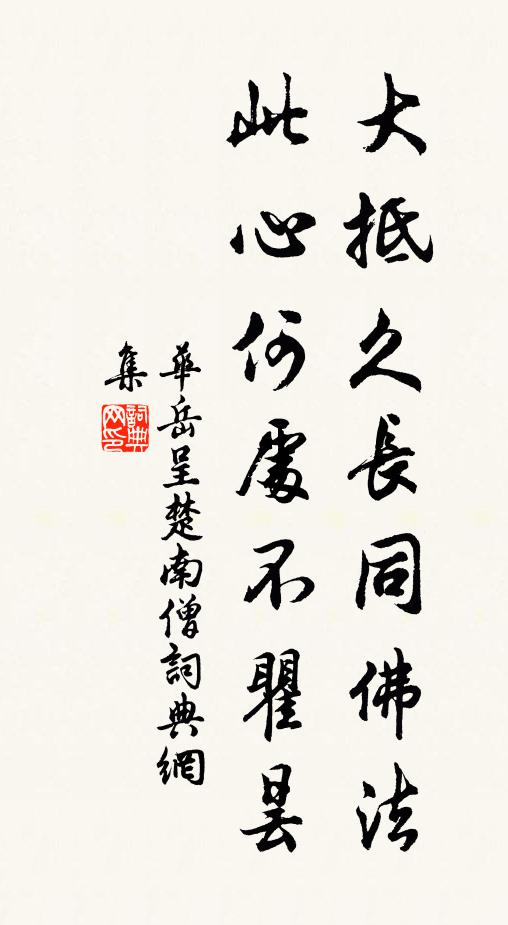 大抵久長同佛法
此心何處不瞿曇
華岳呈楚南僧詞典網
集
詞典网印